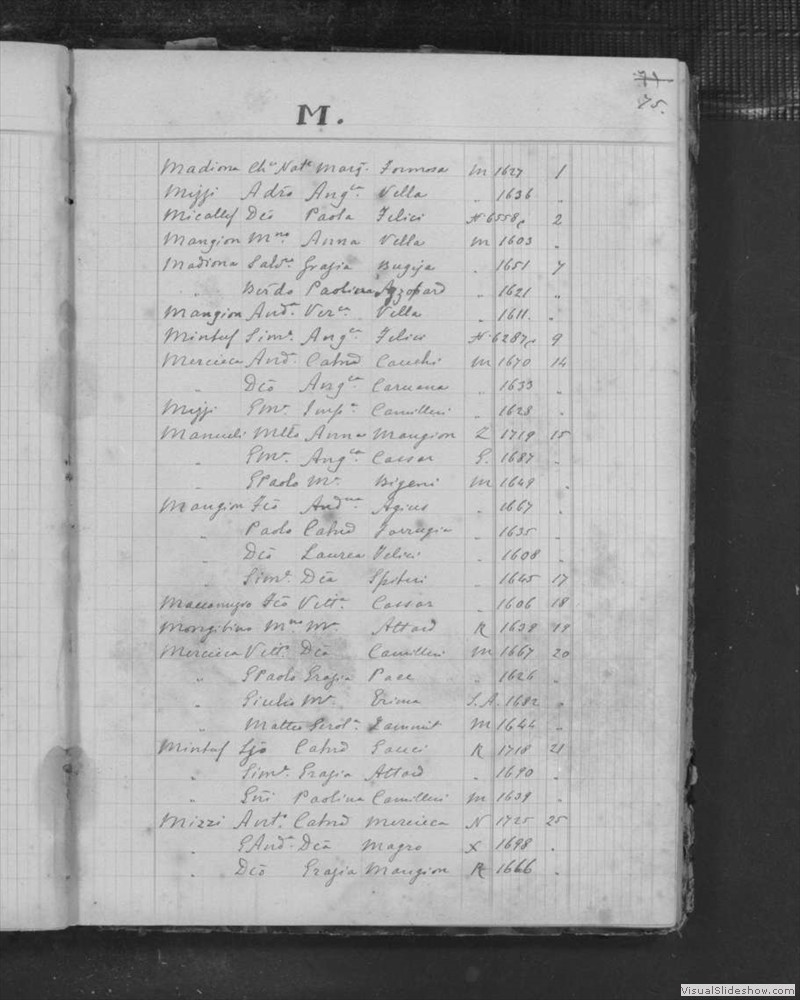 75.
M.
Madiona Chu Nate Marg. Formosa M 1627 1
Mizzi Adrō Angca Vella " 1636 "
Micallef Dcō Paola Felici N 6558 2
Mangion Mno Anna Vella M 1603 "
Madiona Salvre Grazia Bugeja " 1651 7
" Berdo Paolina Azzopard " 1621 "
Mangion Anda Verca Vella " 1611 "
Mintuf Simne Angca Felici N 6287 9
Mercieca And. Catnd Cauchi M 1670 14
" Dcō Angca Caruana " 1633 "
Mizzi Gme Impa Camilleri " 1628 "
Manueli Mttō Anna Mangion Z 1719 15
" Gme Angca Cassar G. 1687 "
" GPaolo Ma Bigeni M 1649 "
Mangion Fcō Andna Agius " 1667 "
" Paolo Catnd Farrugia " 1635 "
" Dcō Laurea Felici " 1608 "
" Simne Dca Spiteri " 1645 17
Maccanuzo Fcō Vitta Cassar " 1606 18
Mongibino Mno Ma Attard R 1638 19
Mercieca Vitto Dca Camilleri M 1667 20
" GPaolo Grazia Pace " 1626 "
" Giulio Ma Erima S.A. 1682 "
" Matteo Gerola Zammit M 1644 "
Mintuf Ljo Catnd Gauci R 1718 21
" Simne Grazia Attard " 1690 "
" Gri Paolina Camilleri M 1639 "
Mizzi Anto Catnd Mercieca N 1725 25
" GAnda Dca Magro X 1698 "
" Dcō Grazia Mangion R 1666 "
VisualSlideshow.com